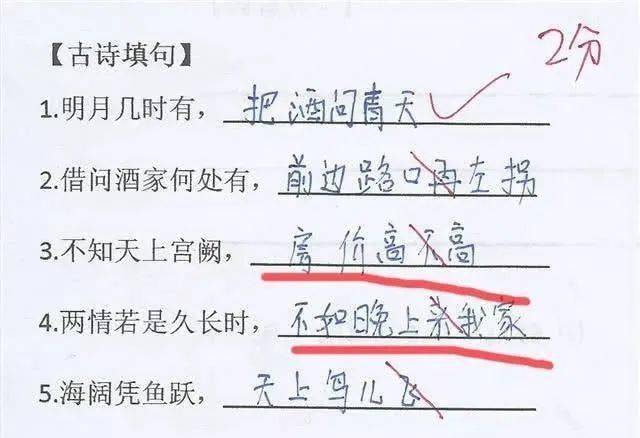 2分
【古诗填句】
1.明月几时有，把酒问青天
2.借问酒家何处有，前边路口再左拐
3.不知天上宫阙，房价高不高
4.两情若是久长时，不如晚上来我家
5.海阔凭鱼跃，天上鸟儿飞